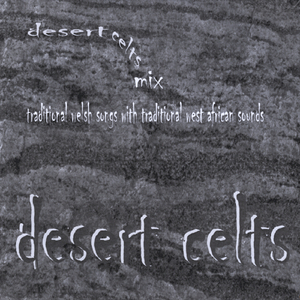 desert celts
mix
traditional welsh songs with traditional west african sounds
desert celts